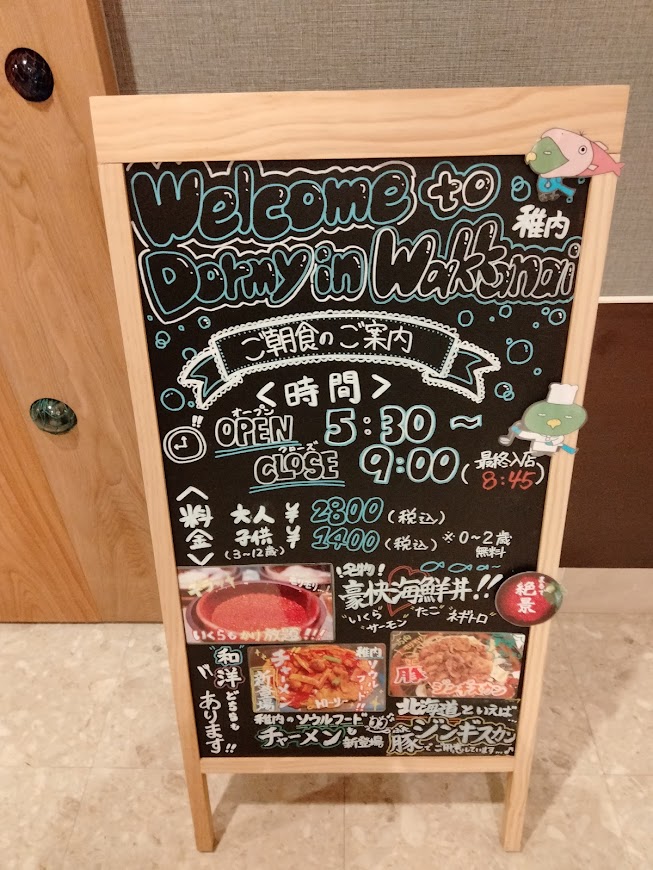 Welcome to
稚内
Dormy in Wakkanai
ご朝食のご案内
<時間>
オープン
OPEN 5:30~
クローズ
CLOSE 9:00(最終入店 8:45)
<料金>
大人 ¥2800(税込)
子供 ¥1400(税込) ※0~2歳 無料
(3~12歳)
いくらもかけ放題!!!
名物!
豪快海鮮丼!!
"いくら" "たこ" ネギトロ"
"サーモン"
絶景
"和洋"どちらもあります!!
新登場
チャーメン
稚内ソウルフード!!
豚ジンギスカン
稚内のソウルフード
チャーメンも新登場
北海道といえば
豚ジンギスカン